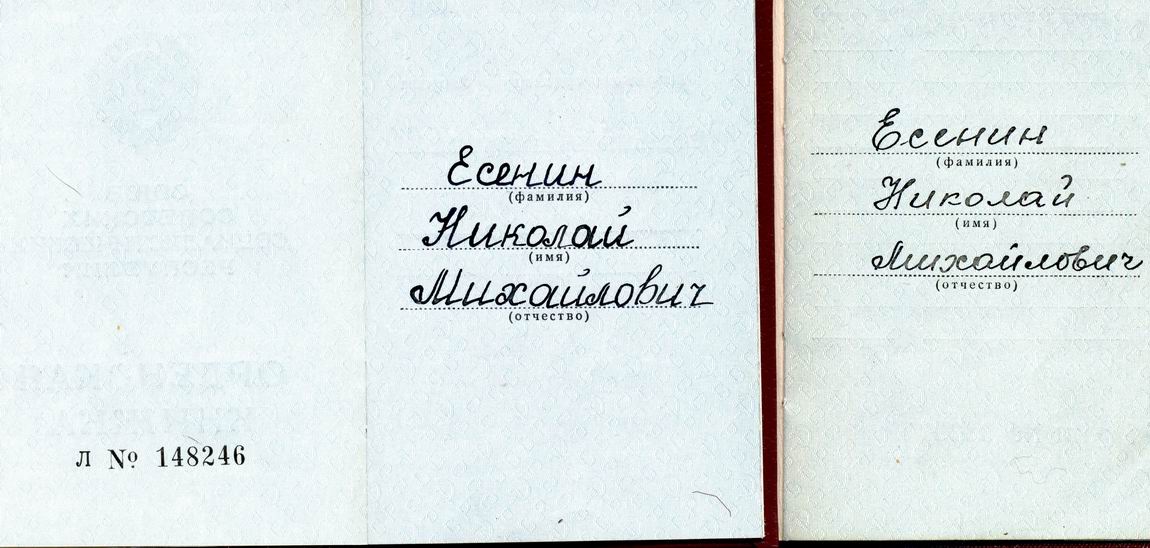 Л № 148246
Есенин
(фамилия)
Николай
(имя)
Михайлович
(отчество)
Есенин
(фамилия)
Николай
(имя)
Михайлович
(отчество)